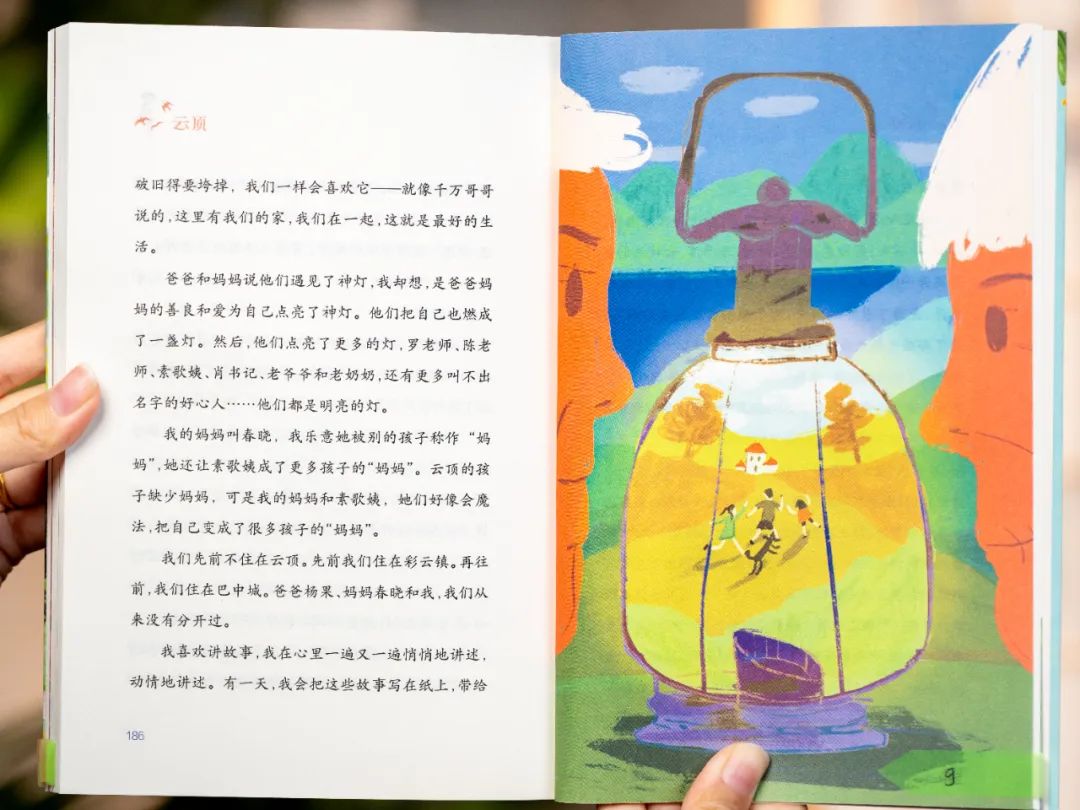 云顶
破旧得要垮掉，我们一样会喜欢它——就像千万哥哥
说的，这里有我们的家，我们在一起，这就是最好的生
活。
爸爸和妈妈说他们遇见了神灯，我却想，是爸爸妈
妈的善良和爱为自己点亮了神灯。他们把自己也燃成
了一盏灯。然后，他们点亮了更多的灯，罗老师、陈老
师、素歌姨、肖书记、老爷爷和老奶奶，还有更多叫不出
名字的好心人……他们都是明亮的灯。
我的妈妈叫春晓，我乐意她被别的孩子称作“妈
妈”，她还让素歌姨成了更多孩子的“妈妈”。云顶的孩
子缺少妈妈，可是我的妈妈和素歌姨，她们好像会魔
法，把自己变成了很多孩子的“妈妈”。
我们先前不住在云顶。先前我们住在彩云镇。再往
前，我们住在巴中城。爸爸杨果、妈妈春晓和我，我们从
来没有分开过。
我喜欢讲故事，我在心里一遍又一遍悄悄地讲述，
动情地讲述。有一天，我会把这些故事写在纸上，带给
186
9